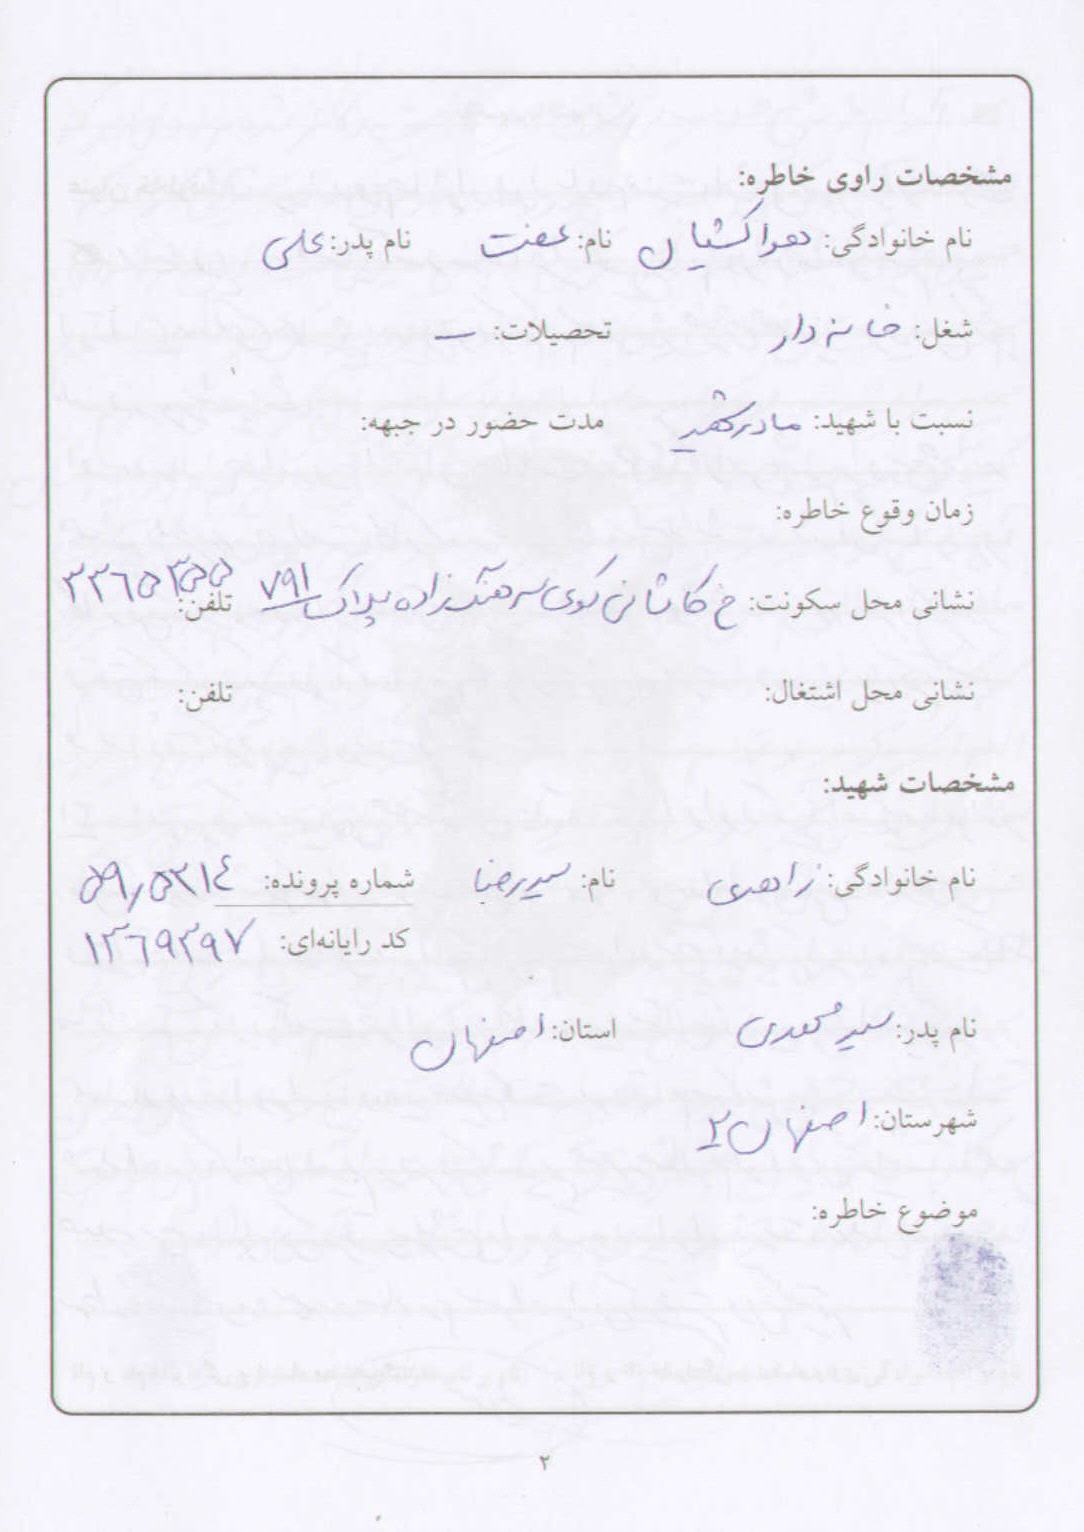 مشخصات راوی خاطره:
نام خانوادگی: هواکشیان نام: عفت نام پدر: علی
شغل: خانه دار تحصیلات: —
نسبت با شهید: مادر شهید مدت حضور در جبهه:
زمان وقوع خاطره:
نشانی محل سکونت: خ کاشانی کوی سرهنگ زاده پلاک ۷۹۱ تلفن: ۳۳۶۵۳۵۵
نشانی محل اشتغال: تلفن:
مشخصات شهید:
نام خانوادگی: زاهدی نام: سیدرضا شماره پرونده: ۵۹٫۵۳۱۴
کد رایانه‌ای: ۱۳۶۹۳۹۷
نام پدر: سید محمدی استان: اصفهان
شهرستان: اصفهان ۲
موضوع خاطره:
۲